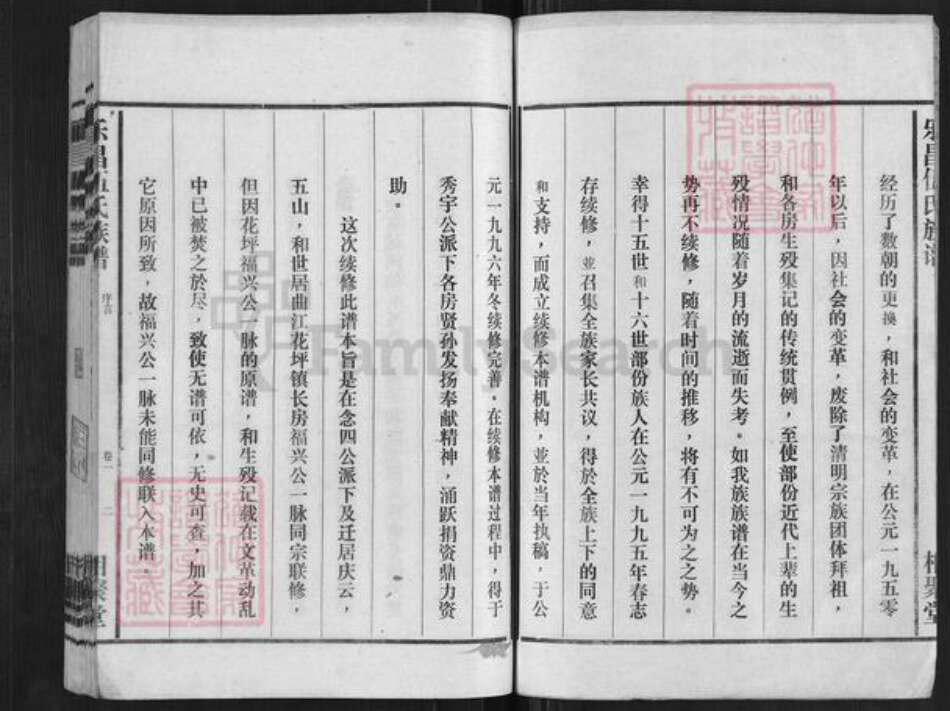 经历了数朝的更换，和社会的变革，在公元一九五零
年以后，因社会的变革，废除了清明宗族团体拜祖，
和各房生殁集记的传统贯例，至使部份近代上辈的生
殁情况随着岁月的流逝而失考。如我族族谱在当今之
势再不续修，随着时间的推移，将有不可为之之势。
幸得十五世和十六世部份族人在公元一九九五年春志
存续修，並召集全族家长共议，得於全族上下的同意
和支持，而成立续修本谱机构，並於当年执稿，于公
元一九九六年冬续修完善。在续修本谱过程中，得于
秀宇公派下各房贤孙发扬奉献精神，涌跃捐资鼎力资
助。
这次续修此谱本旨是在念四公派下及迁居庆云，
五山，和世居曲江花坪镇长房福兴公一脉同宗联修，
但因花坪福兴公一脉的原谱，和生殁记载在文革动乱
中已被焚之於尽，致使无谱可依，无史可查，加之其
它原因所致，故福兴公一脉未能同修联入本谱。
乐昌伍氏族谱
序言
卷一
二
相聚堂
FamilySearch